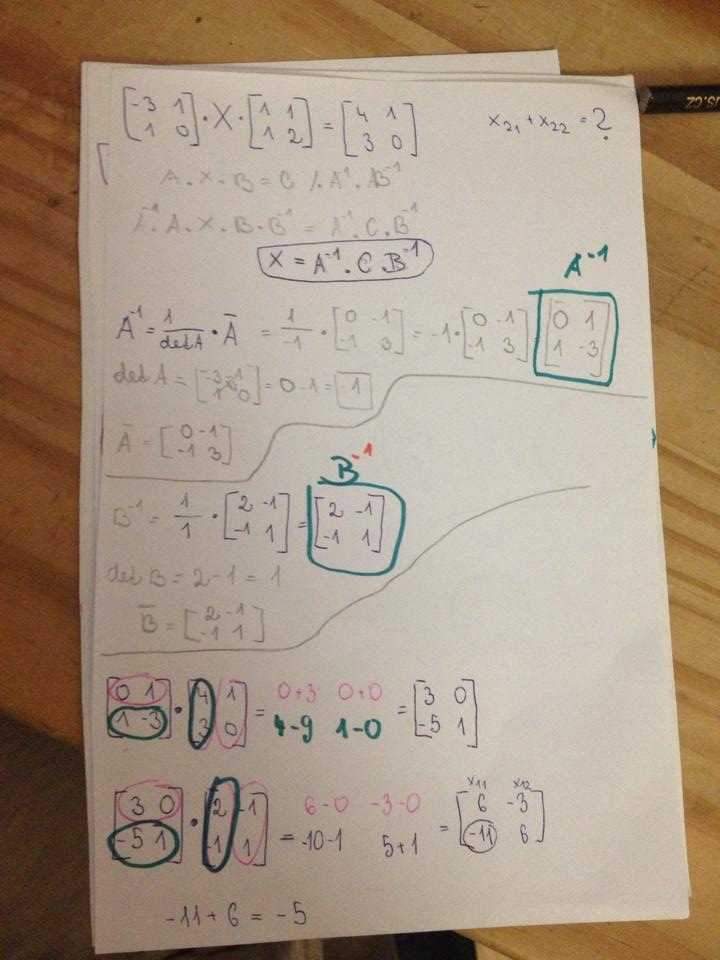 [-3 1; 1 0] · X · [1 1; 1 2] = [4 1; 3 0] x₂₁ + x₂₂ = ?
A · X · B = C /· A⁻¹ · B⁻¹
A⁻¹ · A · X · B · B⁻¹ = A⁻¹ · C · B⁻¹
X = A⁻¹ · C · B⁻¹
A⁻¹
A⁻¹ = 1/det A · Ā = 1/-1 · [0 -1; -1 3] = -1 · [0 -1; -1 3] [0 1; 1 -3]
det A = [-3 1; 1 0] = 0 - 1 = -1
Ā = [0 -1; -1 3]
B⁻¹
B⁻¹ = 1/1 · [2 -1; -1 1] = [2 -1; -1 1]
det B = 2 - 1 = 1
B̄ = [2 -1; -1 1]
[0 1; 1 -3] · [4 1; 3 0] = 0+3 0+0 4-9 1-0 = [3 0; -5 1]
x₁₁ x₁₂
[3 0; -5 1] · [2 -1; -1 1] = 6-0 -3-0 -10-1 5+1 = [6 -3; -11 6]
-11 + 6 = -5
US.CZ